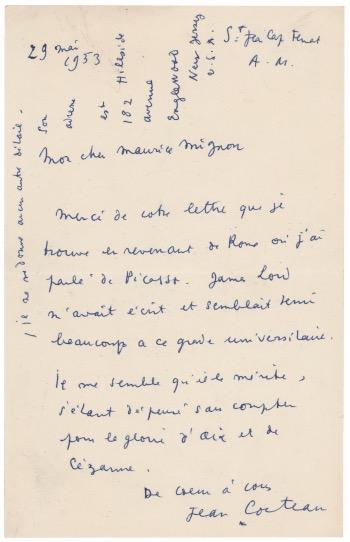 29 mai
1953
St Jea Cap Ferrat
A. M.
Son
adresse
est
182 Hillside
avenue
Englewood
New Jersey
U.S.A.
Mon cher Maurice Mignon
Merci de votre lettre que je
trouve en revenant de Rome où j'ai
parlé de Picasso. James Lord
m'avait écrit et semblait tenir
beaucoup a ce grade universitaire.
Il me semble qu'il le mérite,
s'étant dépensé sans compter
pour la gloire d'Aix et de
Cézanne.
De cœur à vous
Jean Cocteau
je ne vois aucun autre